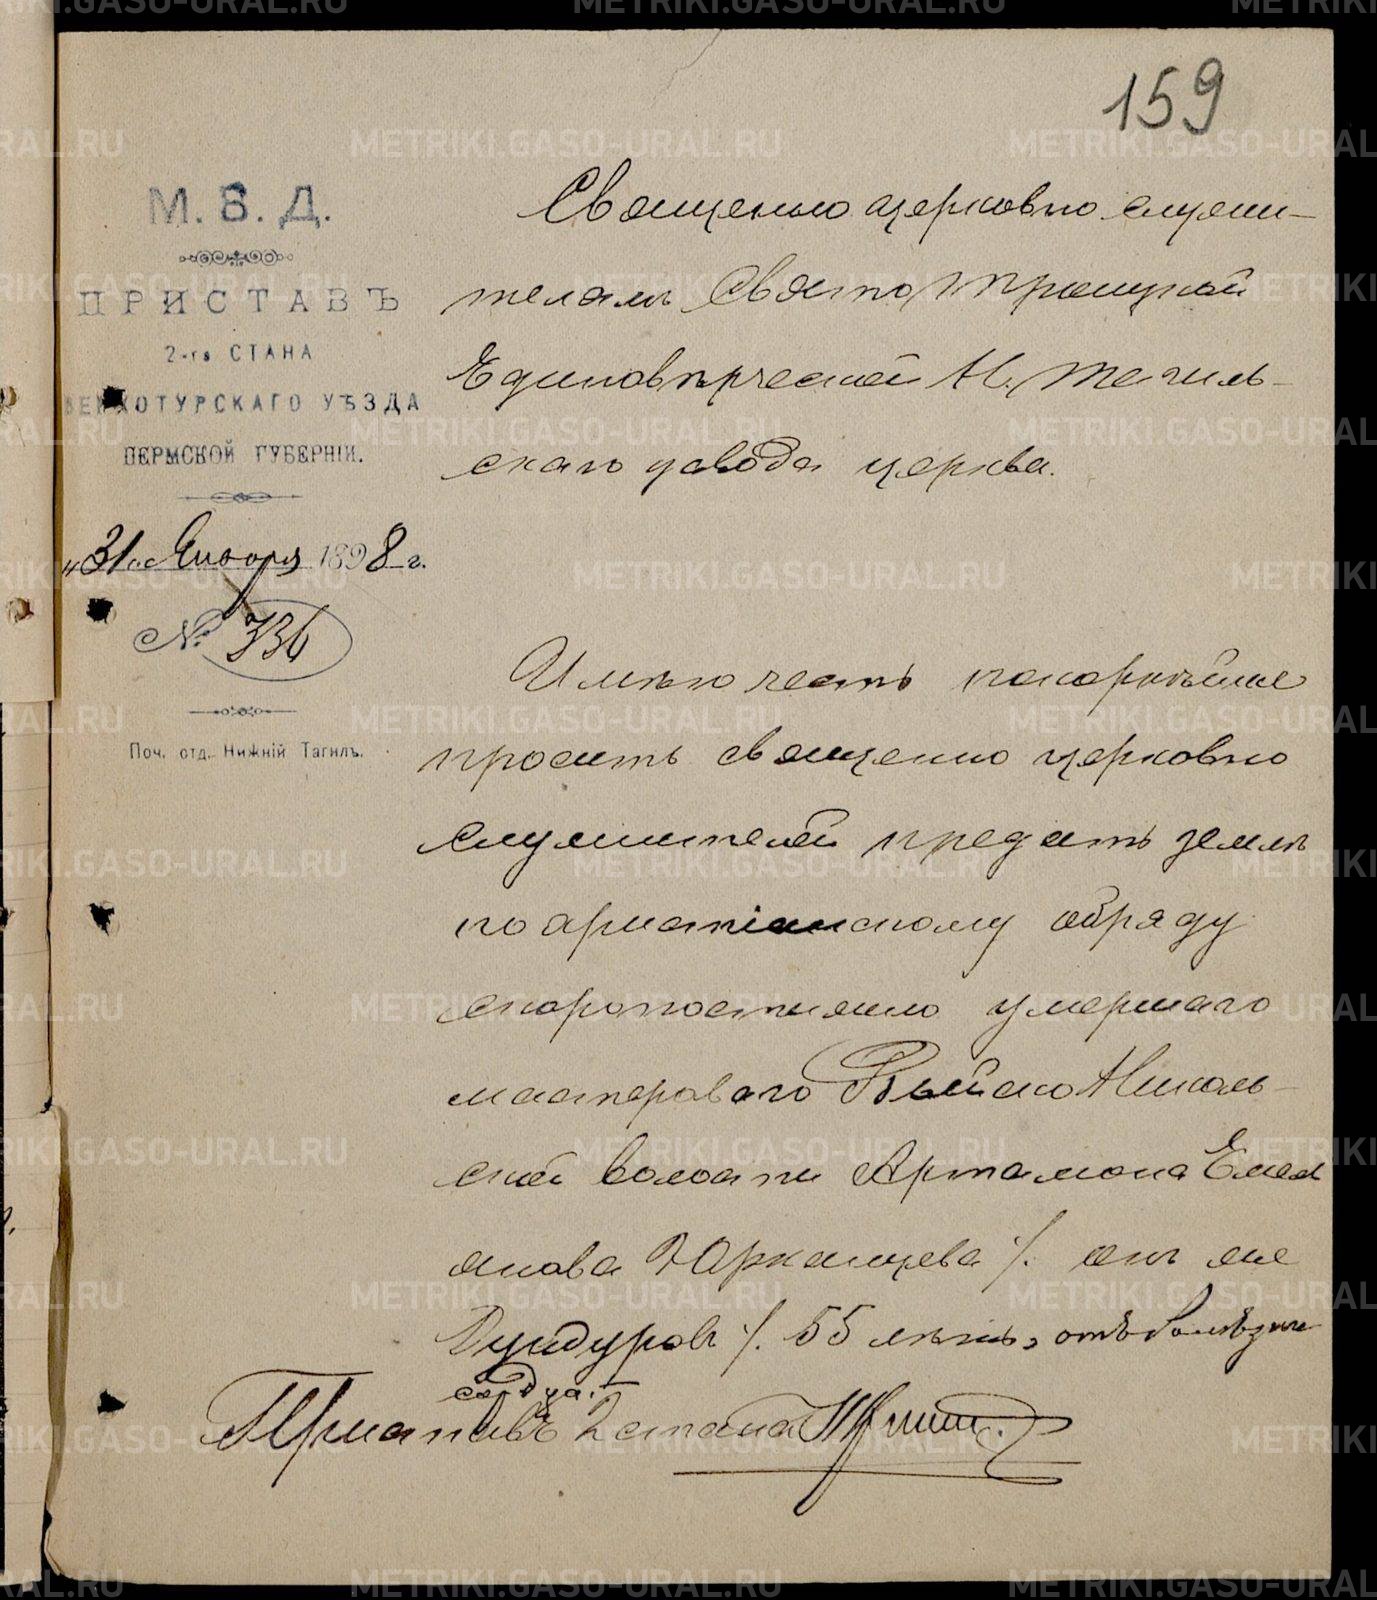 159
М. В. Д.
ПРИСТАВЪ
2-го СТАНА
ВЕРХОТУРСКАГО УѢЗДА
ПЕРМСКОЙ ГУБЕРНІИ.
"31" Января 1898 г.
№ 336
Поч. отд. Нижній Тагилъ.
Священно церковно служи-
телямъ Свято Троицкой
Единовѣрческой Н. Тагиль-
скаго завода церкви.
Имѣю честь покорнѣйше
просить священно церковно
служителей предать землѣ
по христіанскому обряду
скоропостижно умершаго
мастероваго Выйско Николь-
ской волости Артамона Емел
янова Юрканцева /. онъ же
Дундуровъ /. 55 лѣтъ, отъ болѣзни
сердца.
Приставъ 2 стана
METRIKI.GASO-URAL.RU